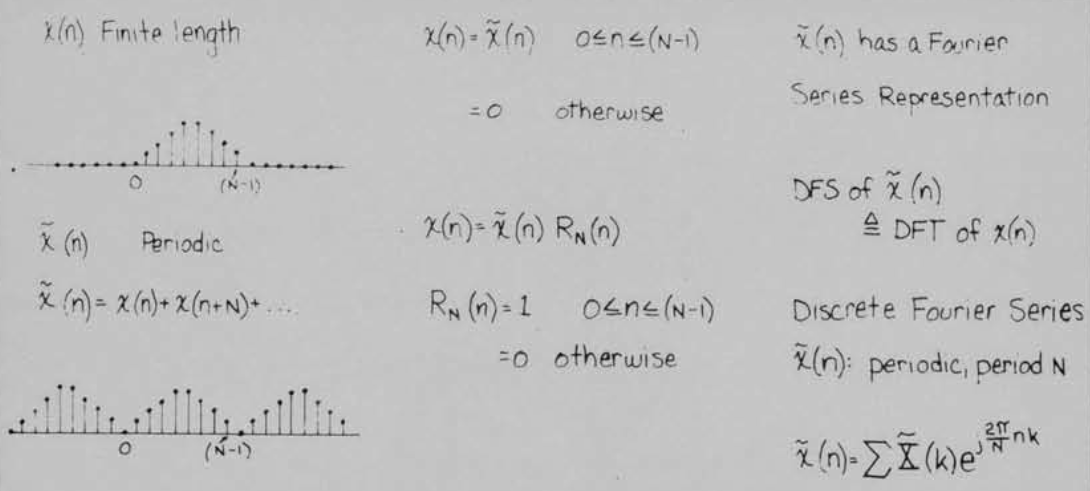 x(n) Finite length
0 (N-1)
x̃(n) Periodic
x̃(n) = x(n) + x(n+N) + ....
0 (N-1)
x(n) = x̃(n) 0≤n≤(N-1)
=0 otherwise
x(n) = x̃(n) R_N(n)
R_N(n) = 1 0≤n≤(N-1)
=0 otherwise
x̃(n) has a Fourier
Series Representation
DFS of x̃(n)
≜ DFT of x(n)
Discrete Fourier Series
x̃(n): periodic, period N
x̃(n) = ∑ X̃(k) e^{j\frac{2π}{N}nk}